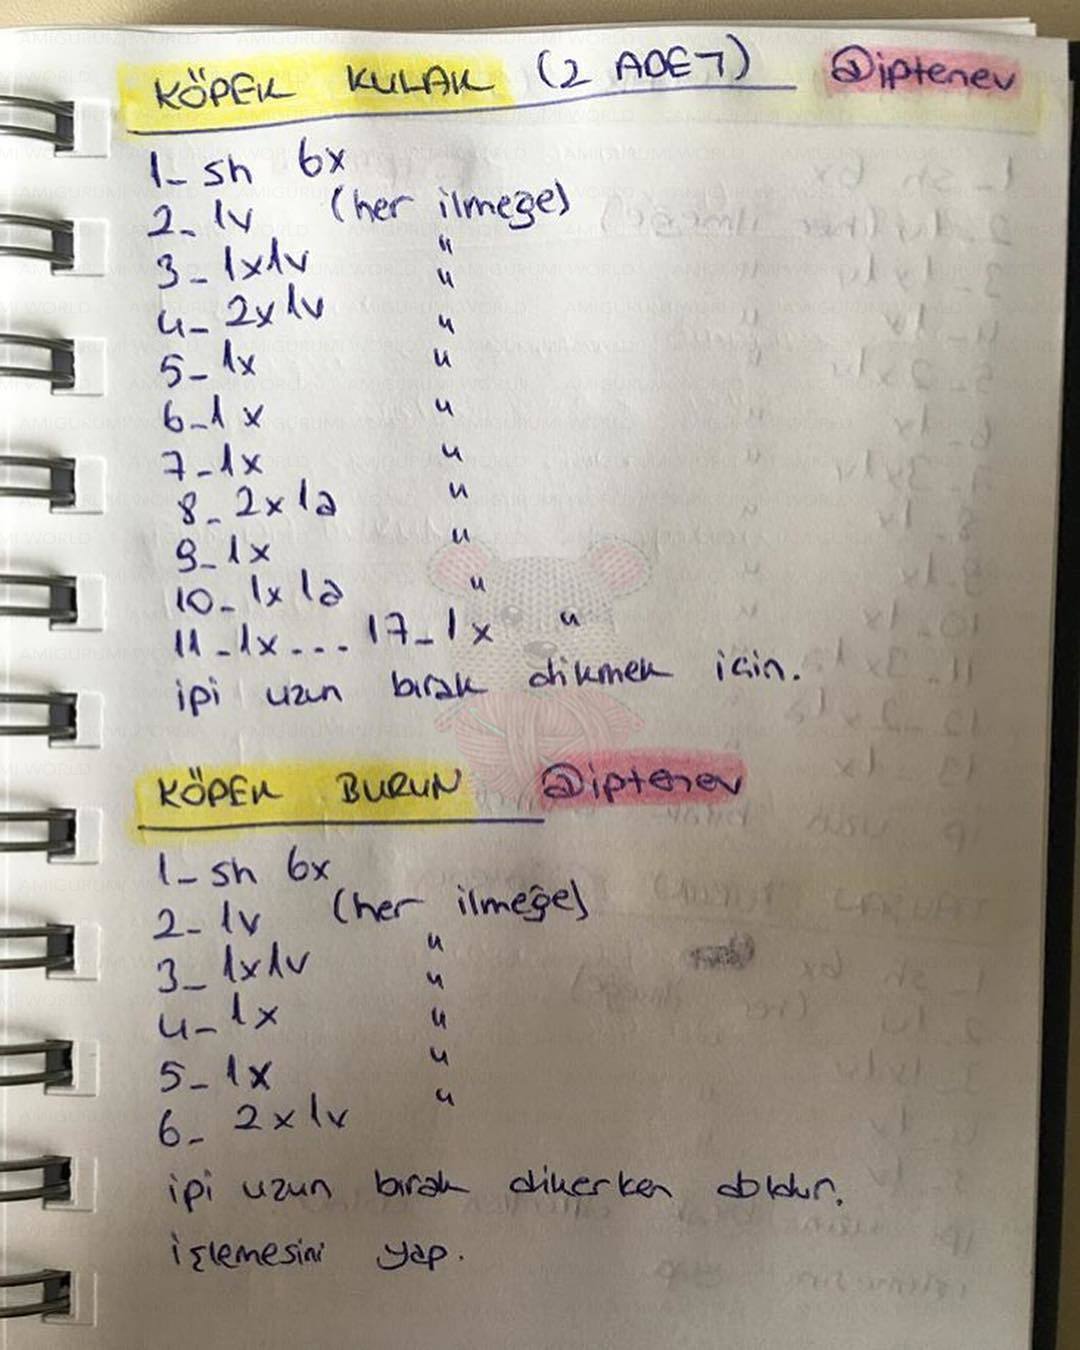 KÖPEK KULAK (2 ADET) @iptenev
1_ sh 6x
2_ 1v (her ilmeğe)
3_ 1x1v "
4_ 2x1v "
5_ 1x "
6_ 1x "
7_ 1x "
8_ 2x1a "
9_ 1x "
10_ 1x1a "
11_1x... 17_1x "
ipi uzun bırak dikmek için.
KÖPEK BURUN @iptenev
1_ sh 6x
2_ 1v (her ilmeğe)
3_ 1x1v "
4_ 1x "
5_ 1x "
6_ 2x1v "
ipi uzun bırak dikerken doldur.
işlemesini yap.